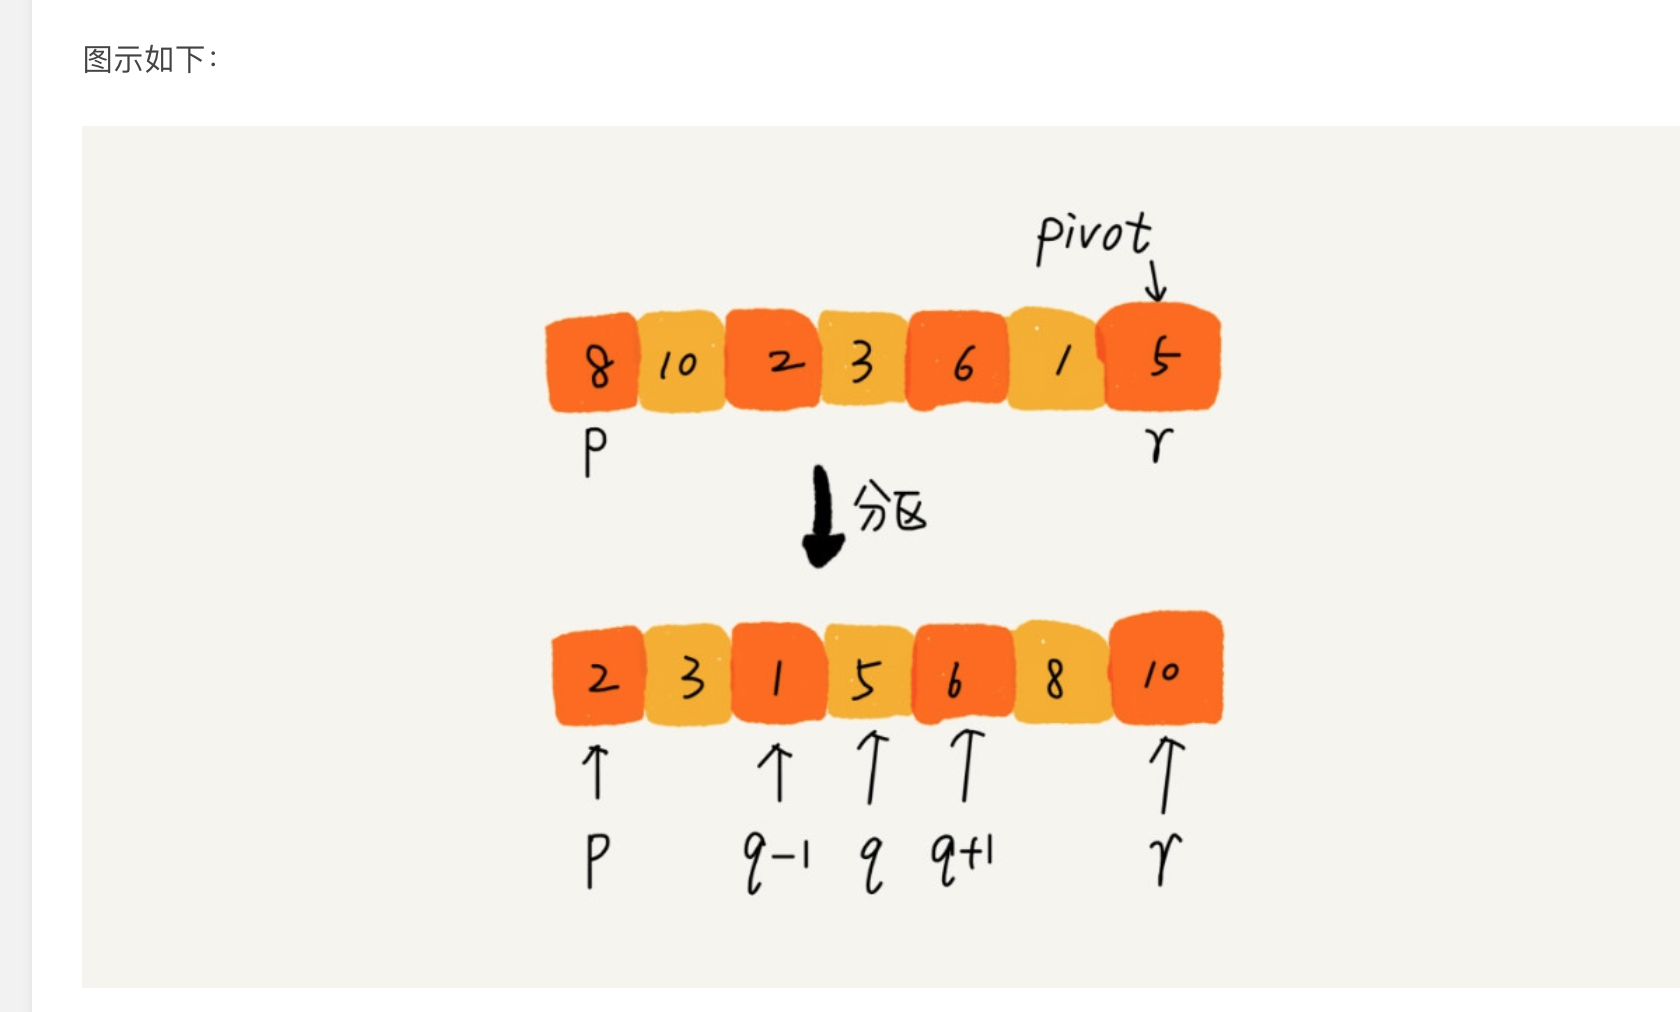 图示如下：
pivot
8 10 2 3 6 1 5
p r
分区
2 3 1 5 6 8 10
p q-1 q q+1 r